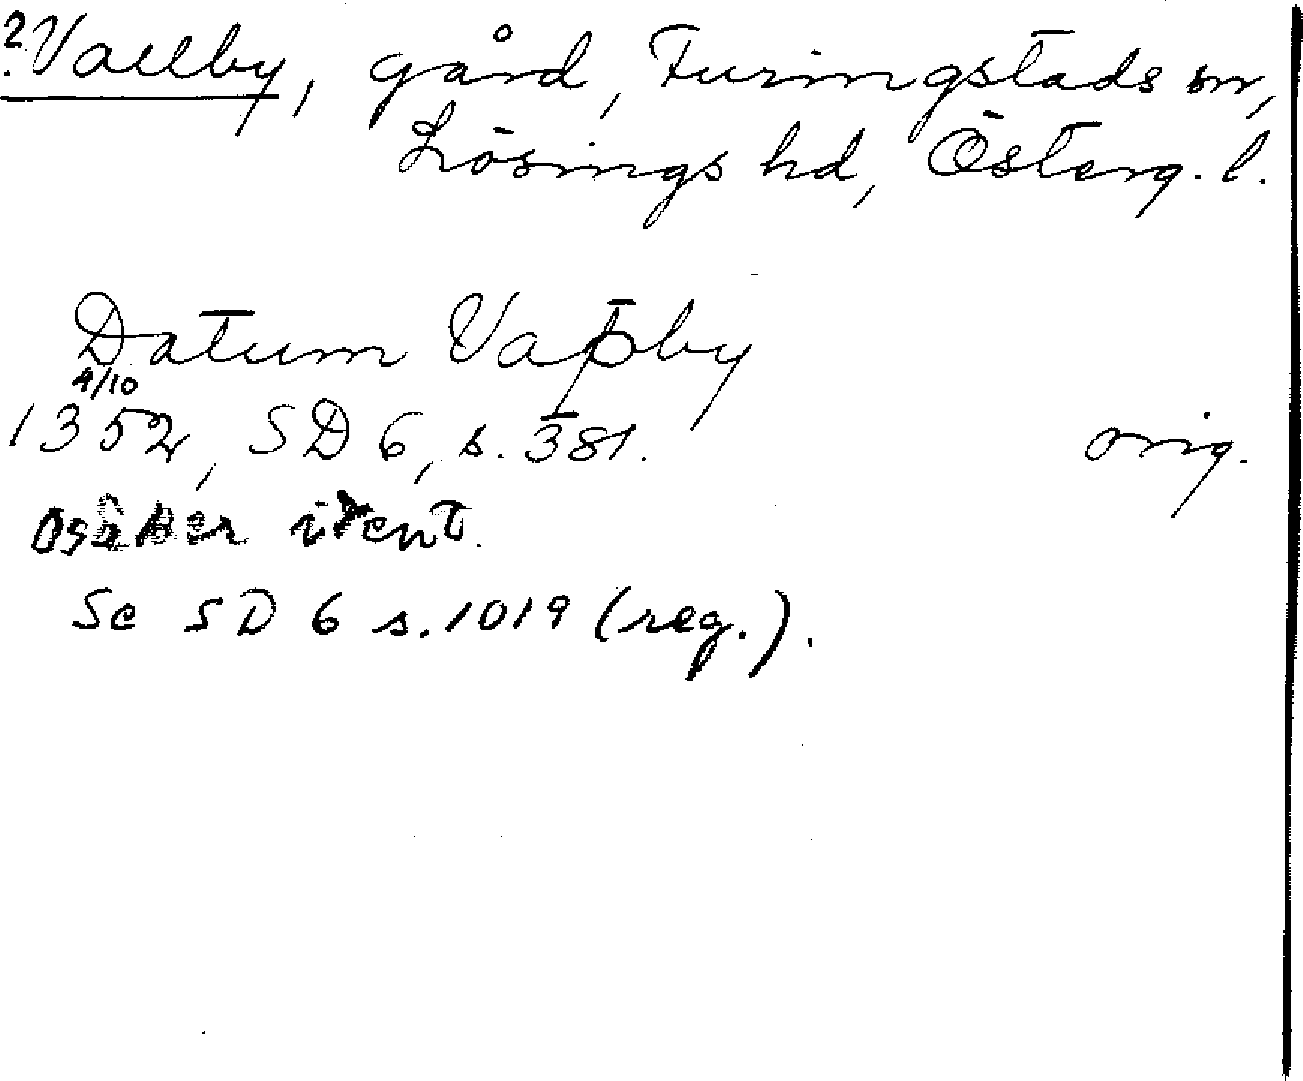 ? Vallby, gård, Furingstads sn,
Lösings hd, Österg. l.
Datum Vaþby
4/10
1352, SD 6, s. 381. orig.
Osäker ident.
Se SD 6 s. 1019 (reg.).